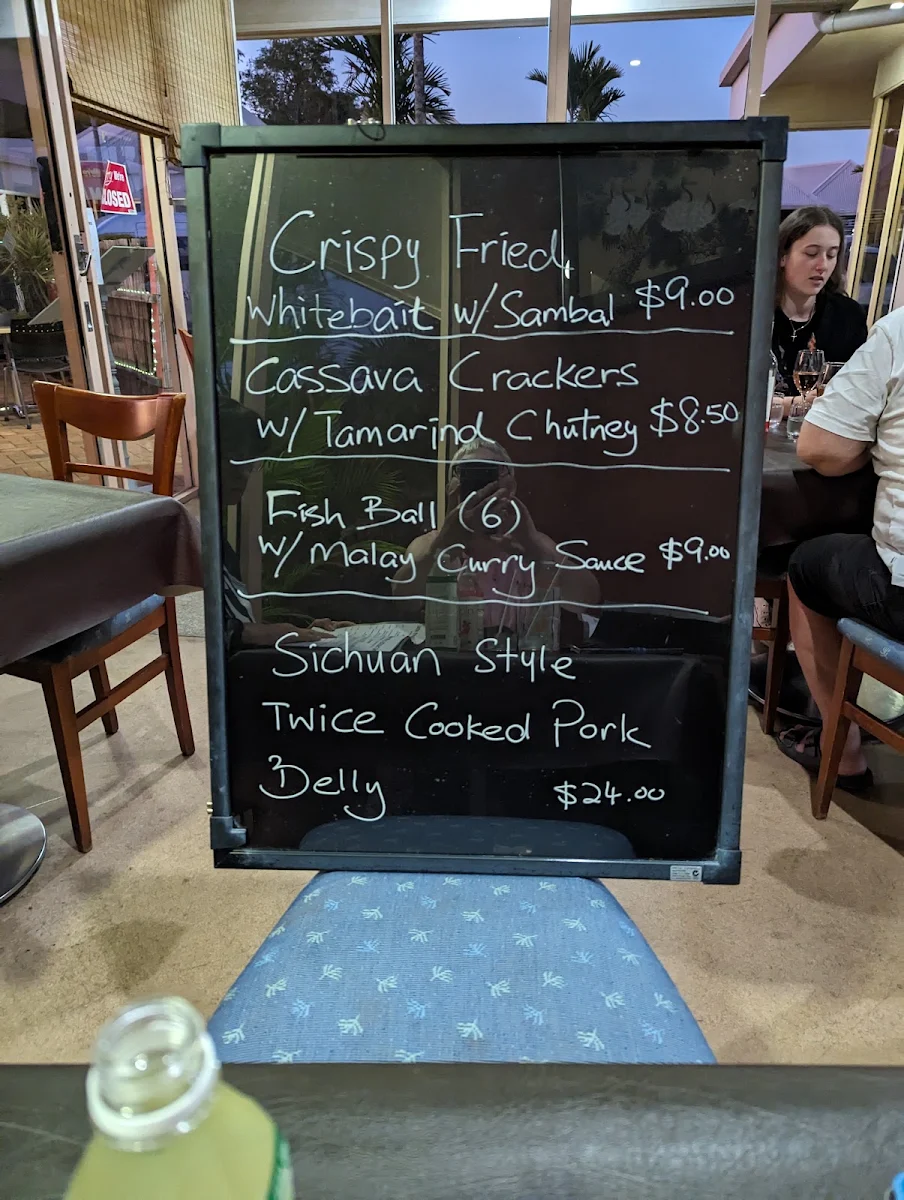 Crispy Fried
Whitebait w/Sambal $9.00
Cassava Crackers
w/Tamarind Chutney $8.50
Fish Ball (6)
w/Malay Curry Sauce $9.00
Sichuan Style
Twice Cooked Pork
Belly $24.00
We're
CLOSED